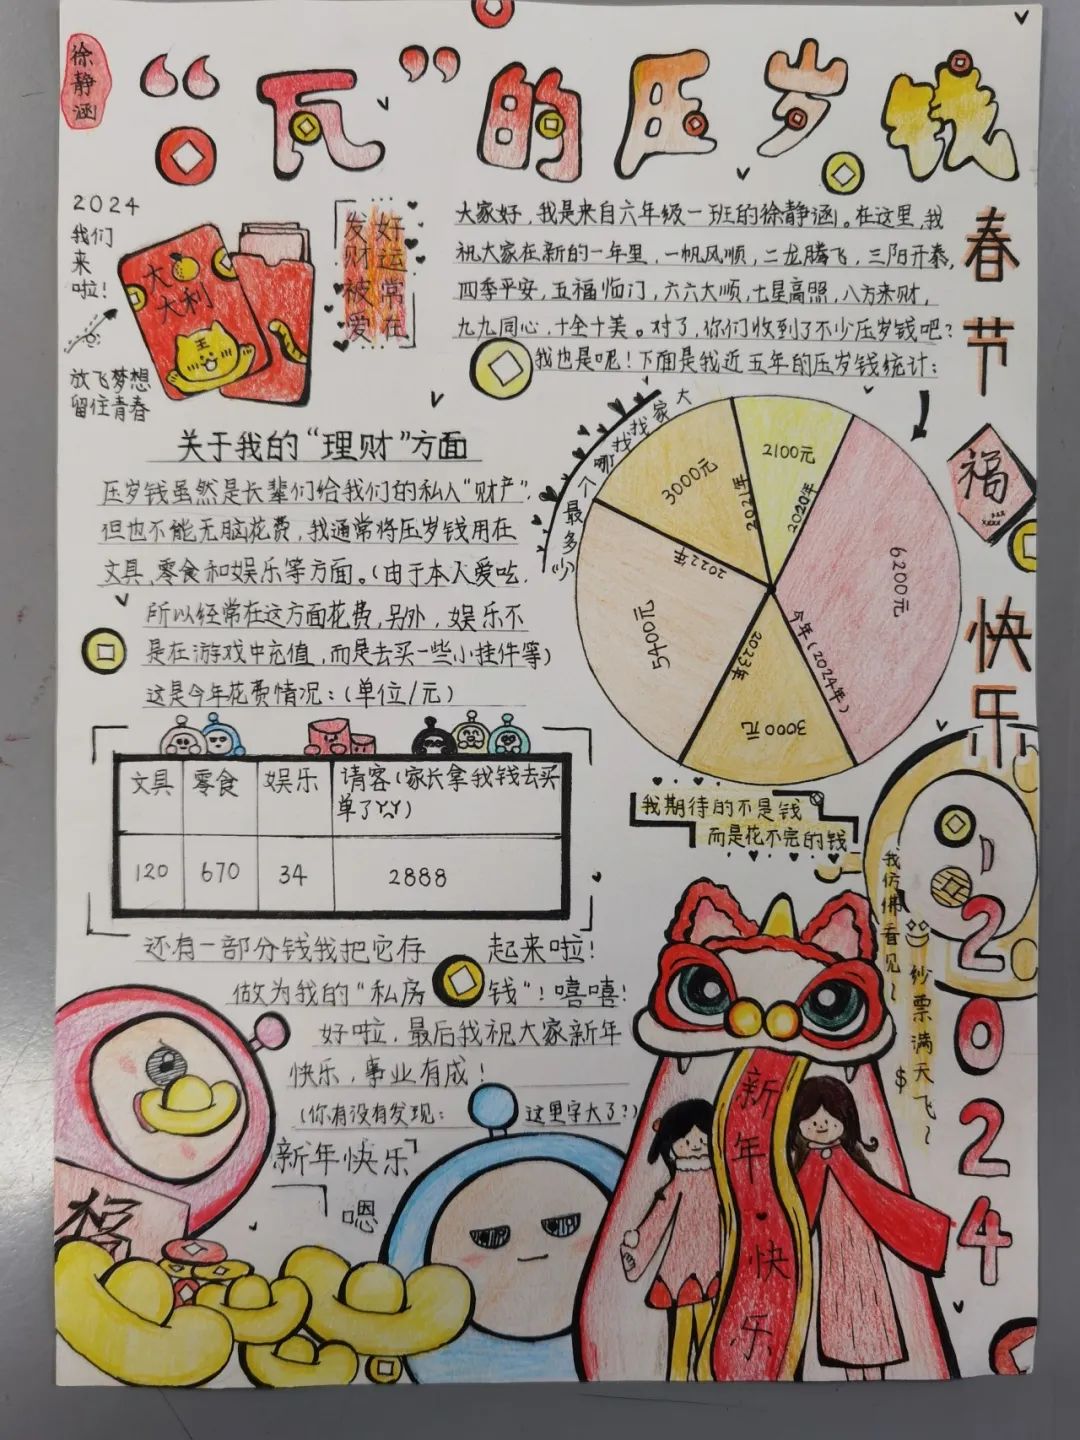 徐静涵
“瓦”的压岁钱
2024
我们
来
啦！
放飞梦想
留住青春
大
大利
王
好运常在
发财被爱
大家好，我是来自六年级一班的徐静涵。在这里，我
祝大家在新的一年里，一帆风顺，二龙腾飞，三阳开泰，
四季平安，五福临门，六六大顺，七星高照，八方来财，
九九同心，十全十美。对了，你们收到了不少压岁钱吧？
我也是呢！下面是我近五年的压岁钱统计：
春节快乐
福
大家找找哪个最多（少）
2100元
2020年
3000元
2021年
5400元
2022年
3000元
2023年
6200元
今年（2024年）
关于我的“理财”方面
压岁钱虽然是长辈们给我们的私人“财产”，
但也不能无脑花费，我通常将压岁钱用在
文具、零食和娱乐等方面。（由于本人爱吃，
所以经常在这方面花费，另外，娱乐不
是在游戏中充值，而是去买一些小挂件等）
这是今年花费情况：（单位/元）
文具 零食 娱乐 请客（家长拿我钱去买
单了YY）
120 670 34 2888
我期待的不是钱
而是花不完的钱
还有一部分钱我把它存起来啦！
做为我的“私房钱”！嘻嘻！
好啦，最后我祝大家新年
快乐，事业有成！
（你有没有发现：这里字大了？）
新年快乐
嗯
福
我仿佛看见~
钞票满天飞~
$
2024
新年·快乐